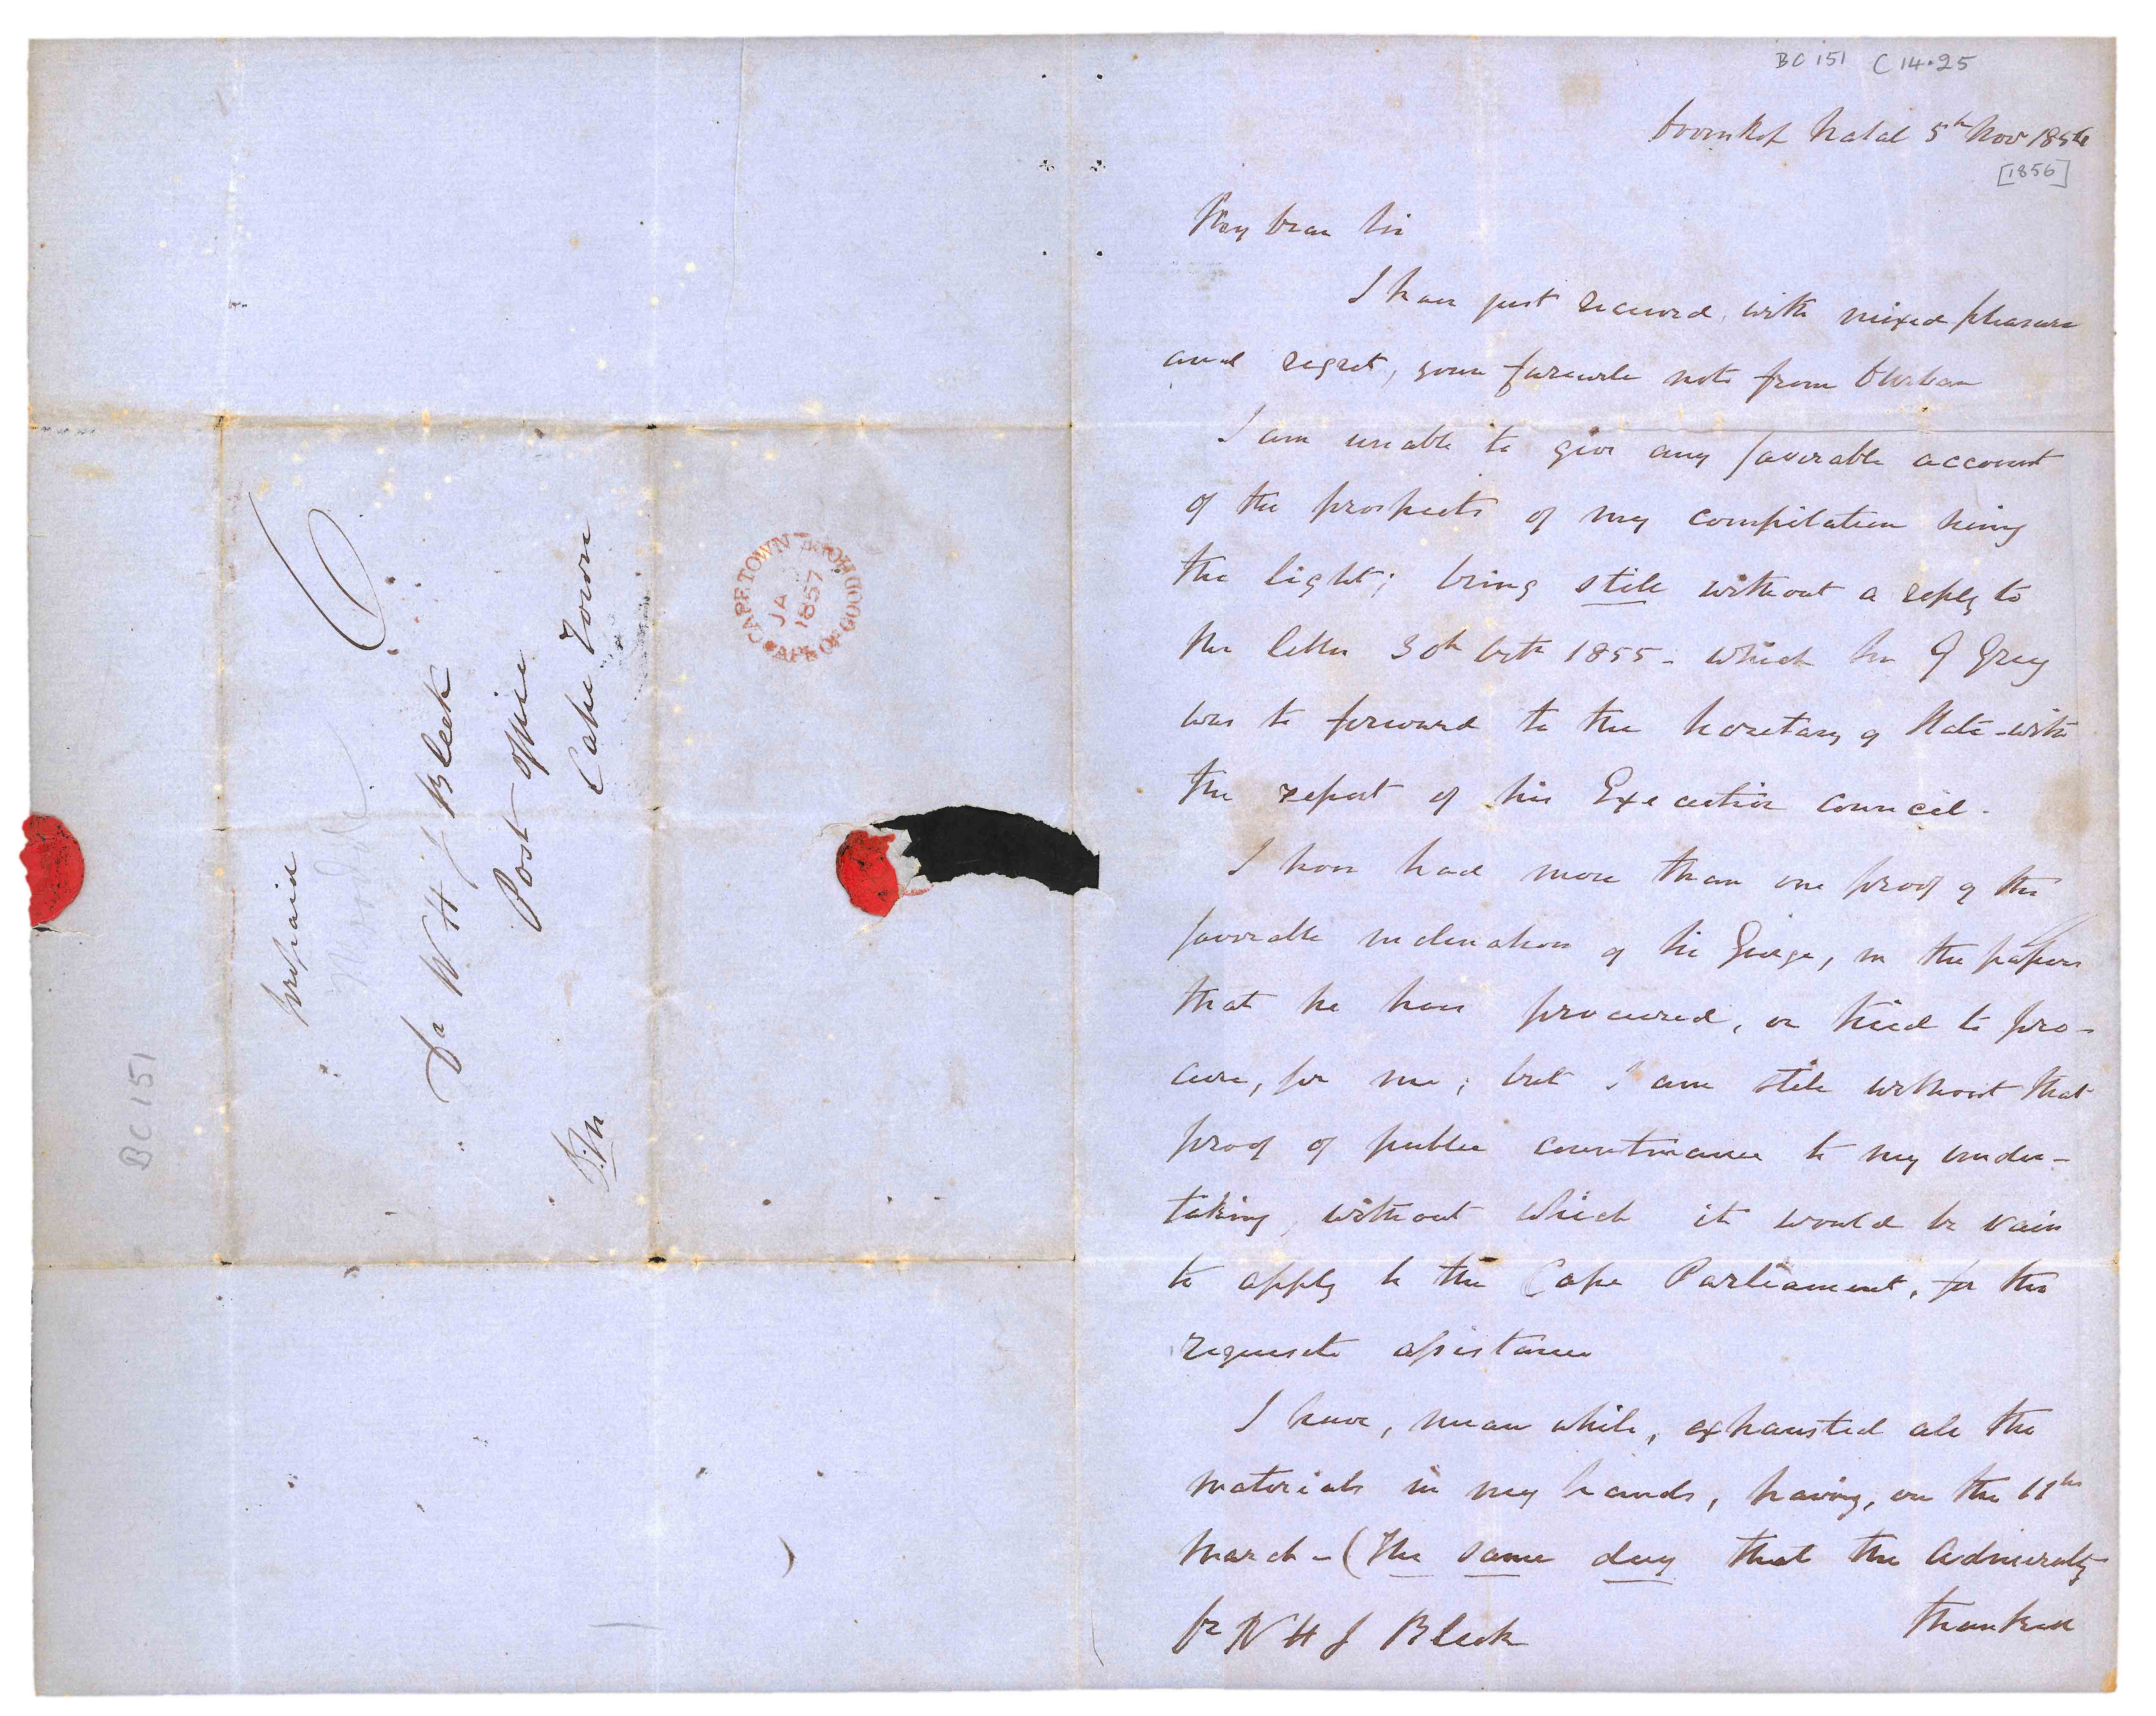 BC 151 C 14.25
Doornkop Natal 5th Nov 1856
[1856]
My Dear Sir
I have just received, with mixed pleasure
and regret, your farewell note from D'Urban
I am unable to give any favorable account
of the prospects of my compilation seeing
the light; being still without a reply to
the letter 30th Octr 1855 - which Sir G Grey
was to forward to the Secretary of State - with
the report of his Executive Council.
I have had more than one proof of the
favorable inclination of Sir George, in the papers
that he has procured, or tried to pro-
cure, for me; but I am still without that
proof of public countenance to my under-
taking, without which it would be vain
to apply to the Cape Parliament, for the
requisite assistance
I have, mean while, exhausted all the
materials in my hands, having, on the 11th
March - (The same day that the Admiralty
Dr W H J Bleek
thanked
prepaid
Dr W H J Bleek
Post office
Cape Town
CAPE TOWN CAPE OF GOOD HOPE
JA
1857
BC 151